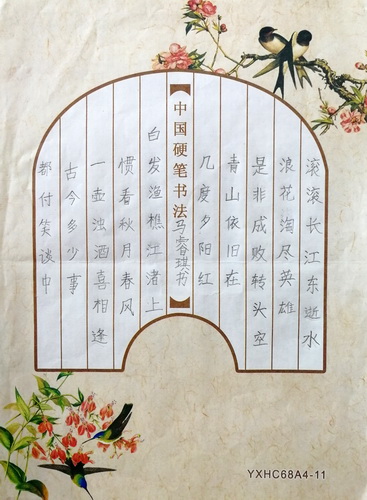 滚滚长江东逝水
浪花淘尽英雄
是非成败转头空
青山依旧在
几度夕阳红
【中国硬笔书法】
马睿琪书
白发渔樵江渚上
惯看秋月春风
一壶浊酒喜相逢
古今多少事
都付笑谈中
YXHC68A4-11